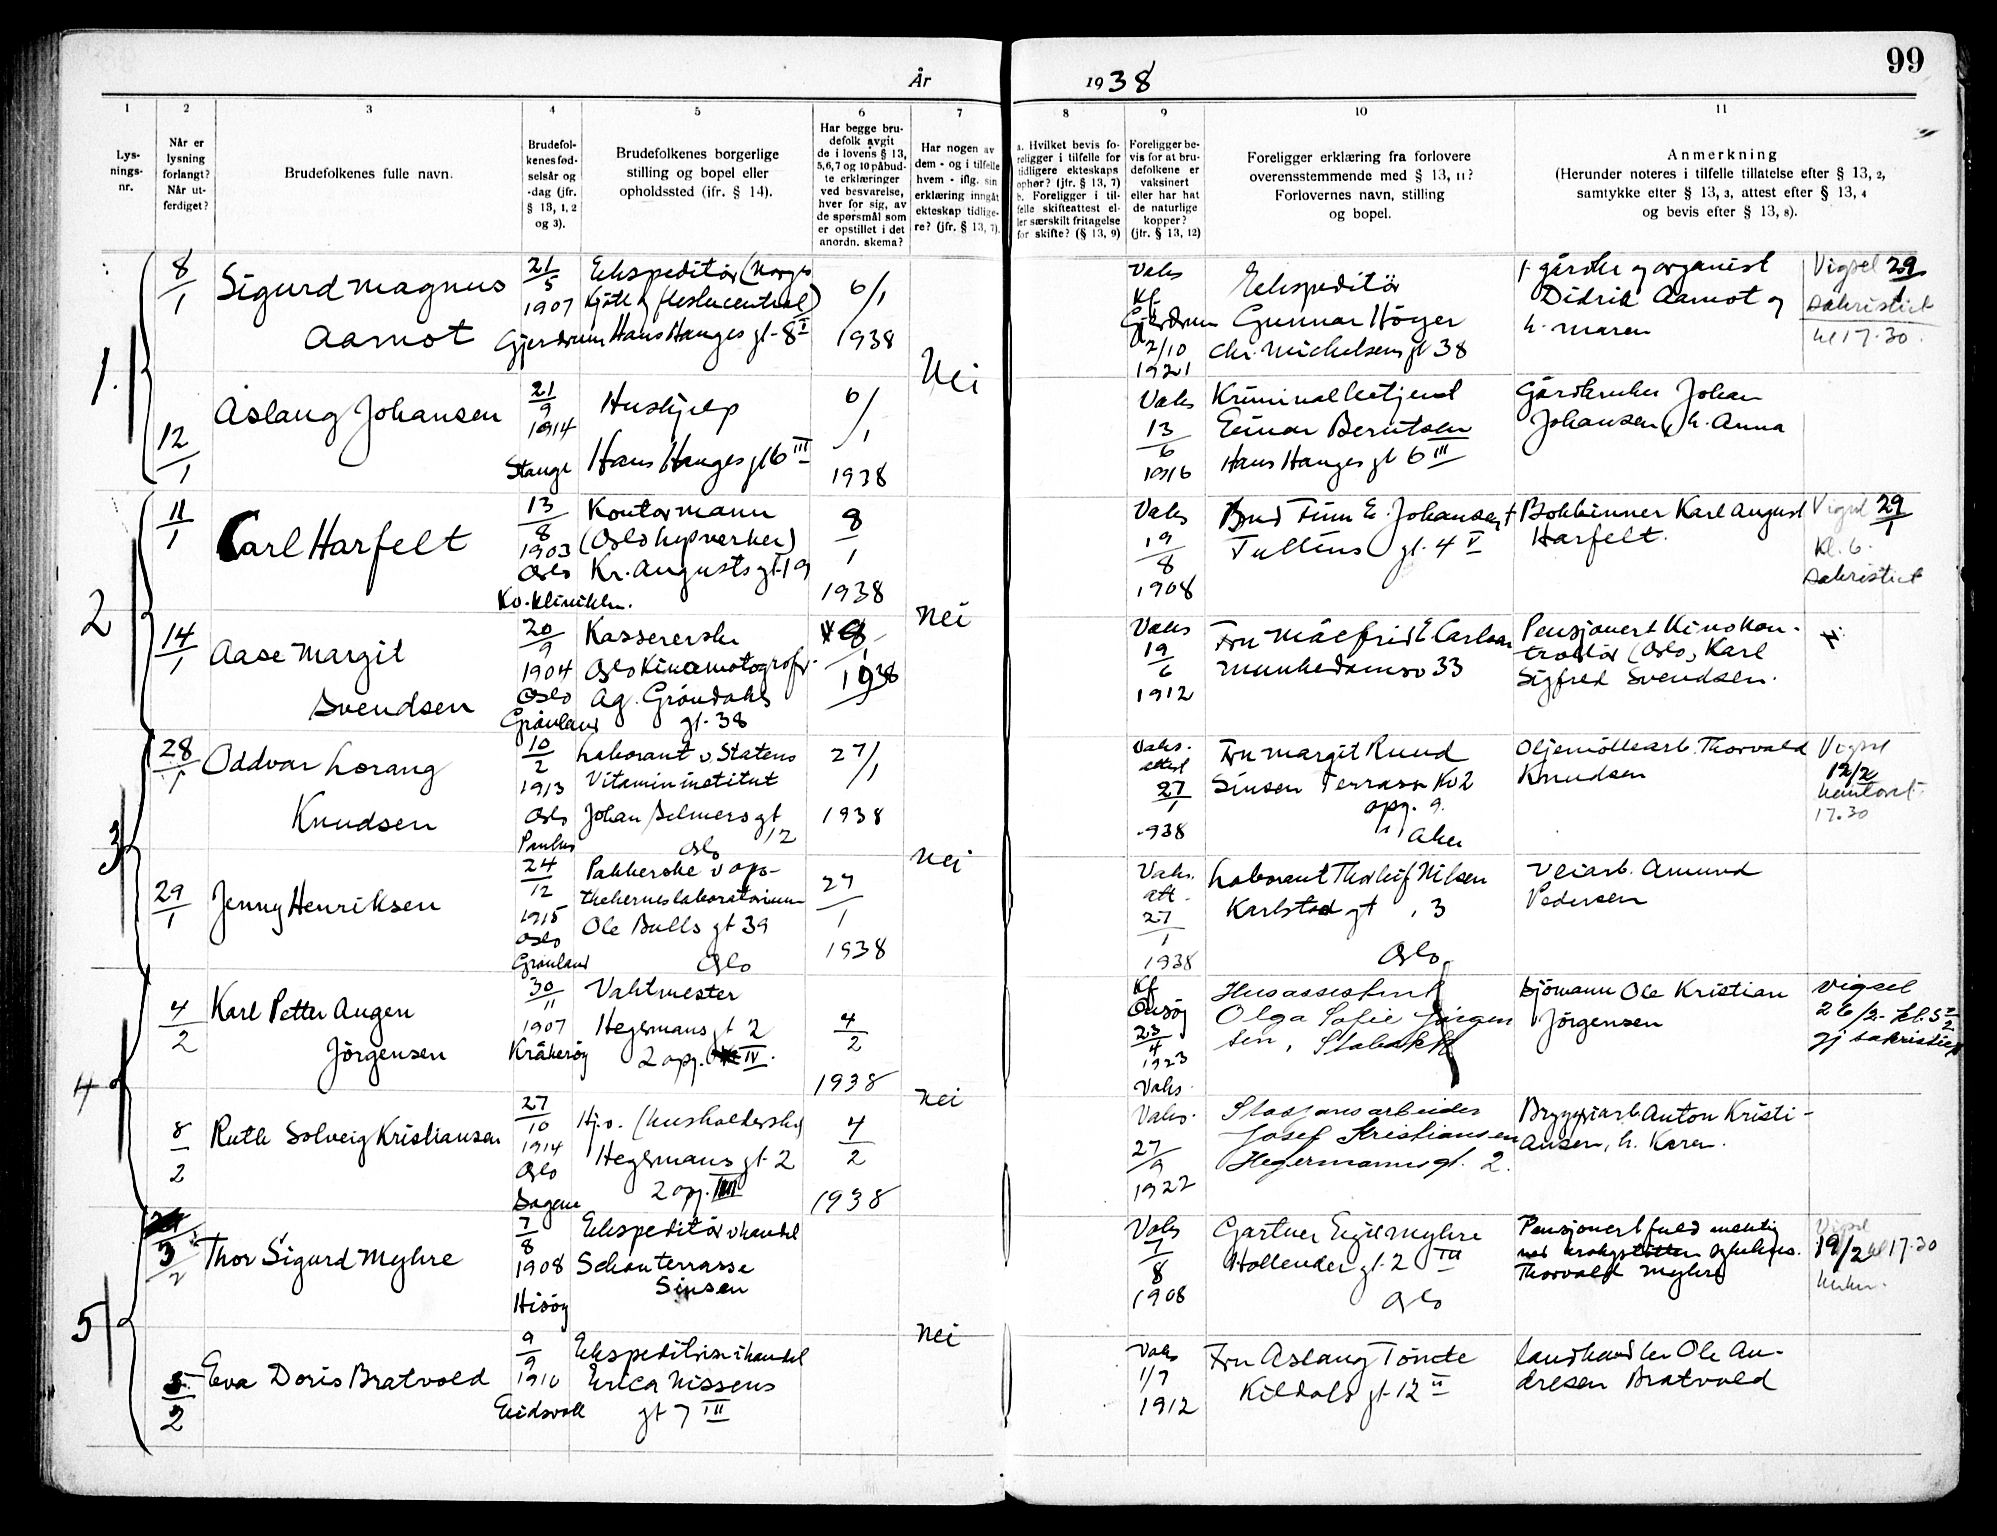 99
År
1938
1
2
3
4
5
6
7
8
9
10
11
Lys-
nings-
nr.
Når er
lysning
forlangt?
Når ut-
ferdiget?
Brudefolkenes fulle navn.
Brudefol-
kenes fød-
selsår og
-dag (jfr.
§ 13, 1, 2
og 3).
Brudefolkenes borgerlige
stilling og bopel eller
opholdssted (ifr. § 14).
Har begge bru-
defolk avgit
de i lovens § 13,
5,6,7 og 10 påbud-
te erklæringer
ved besvarelse,
hver for sig, av
de spørsmål som
er opstillet i det
anordn. skema?
Har nogen av
dem - og i tilfelle
hvem - iflg. sin
erklæring inngåt
ekteskap tidlige-
re? (jfr. § 13, 7).
a. Hvilket bevis fo-
religger i tilfelle for
tidligere ekteskaps
ophør? (jfr. § 13, 7)
b. Foreligger i til-
felle skifteattest el-
ler særskilt fritagelse
for skifte? (§ 13, 9)
Foreligger be-
vis for at bru-
defolkene er
vaksinert
eller har hat
de naturlige
kopper?
(jfr. § 13, 12)
Foreligger erklæring fra forlovere
overensstemmende med § 13, 11?
Forlovernes navn, stilling
og bopel.
Anmerkning
(Herunder noteres i tilfelle tillatelse efter § 13, 2,
samtykke efter § 13, 3, attest efter § 13, 4
og bevis efter § 13, 8).
1.
8/1
Sigurd Magnus
Aamot
21/5
1907
Gjerdrum
Ekspeditør (Norges
Kjøtt og fleskecentral)
Hans Hauges gt. 8 I
6/1
1938
Nei
Vaks
Kf.
Gjerdrum
2/10
1921
Ekspeditör
Gunnar Höyer
Chr. Michelsens gt 38
f. gårdbr og organist
Didrik Aamot og
h. Maren
Vigsel 29/1
Sakristiet
kl 17.30.
12/1
Aslaug Johansen
21/9
1914
Stange
Hushjelp
Hans Hauges gt 6 III
6/1
1938
Vaks
13/6
1916
Kriminalbetjent
Einar Berntsen
Hans Hauges gt 6 III
Gårdbruker Johan
Johansen, h. Anna
2
11/1
Carl Harfelt
13/8
1903
Oslo
Kv.klinikken.
Kontormann
(Oslo lysverker)
Kr. Augusts gt. 19
8/1
1938
nei
Vaks
19/8
1908
Bud Finn E. Johansen
Tullins gt. 4 V
Bokbinner Karl August
Harfelt.
Vigsel 29/1
Kl. 6.
Sakristiet
14/1
Aase Margit
Svendsen
20/9
1904
Oslo
Grønland
Kassererske
Oslo Kinematografer
Ag. Gröndahls
gt. 38
8/1
1938
Vaks
19/6
1912
Fru Målfrid E Carlsen
Munkedamsv 33
Pensjonert Kinokon-
trollör (Oslo) Karl
Sigfred Svendsen.
3
28/1
Oddvar Lorang
Knudsen
10/2
1913
Oslo
Paulus
Laborant v Statens
Vitamininstitut
Johan Selmers gt
12
Oslo
27/1
1938
nei
Vaks.
attest
27/1
-938
Fru Margit Ruud
Sinsen Terrasse Kv 2
opg. 9.
Aker
Oljemöllearb. Thorvald
Knudsen
Vigsel
12/2
17.30
29/1
Jenny Henriksen
24/12
1915
Oslo
Grønland
Pakkerske v apo-
thekernes laboratorium
Ole Bulls gt 39
Oslo
27/1
1938
Vaks.
att.
27/1
1938
Laborant Thorleif Nilsen
Karlstad gt. 3
Oslo
Veiarb. Amund
Pedersen
4
4/2
Karl Petter Augen
Jörgensen
30/11
1907
Kråkeröy
Vaktmester
Hegermans gt 2
2 opg. IV.
4/2
1938
nei
Kf
Onsøy
23/4
1923
Vaks.
Husassistent
Olga Sofie Jörgen
sen, Stabekk
Sjömann Ole Kristian
Jörgensen
Vigsel
26/2- kl. 5 1/2
i sakristiet
8/2
Ruth Solveig Kristiansen
27/10
1914
Oslo
Sagene
Hj.v. (husholderske)
Hegermans gt 2
2 opg. III
4/2
1938
Vaks.
27/9
1922
Stasjonsarbeider
Josef Kristiansen
Hegermanns gt. 2.
Bryggeriarb. Anton Kristi-
ansen, h. Karen.
5
3/2
Thor Sigurd Myhre
7/8
1908
Hisøy
Ekspeditör v handel
Schouterrasse
Sinsen
nei
Vaks
7/8
1908
Gartner Egil Myhre
Hollender gt. 2 III
Oslo
Pensjonert fuldmektig
Thorvald Myhre
Vigsel
19/2 kl 17.30
5/2
Eva Doris Bratvold
9/9
1910
Eidsvoll
Ekspeditrise i handel
Erica Nissens
gt 7 III
Vaks
1/7
1912
Fru Aslaug Tömte
Kildals gt. 12 II
Landhandler Ole An-
dresen Bratvold